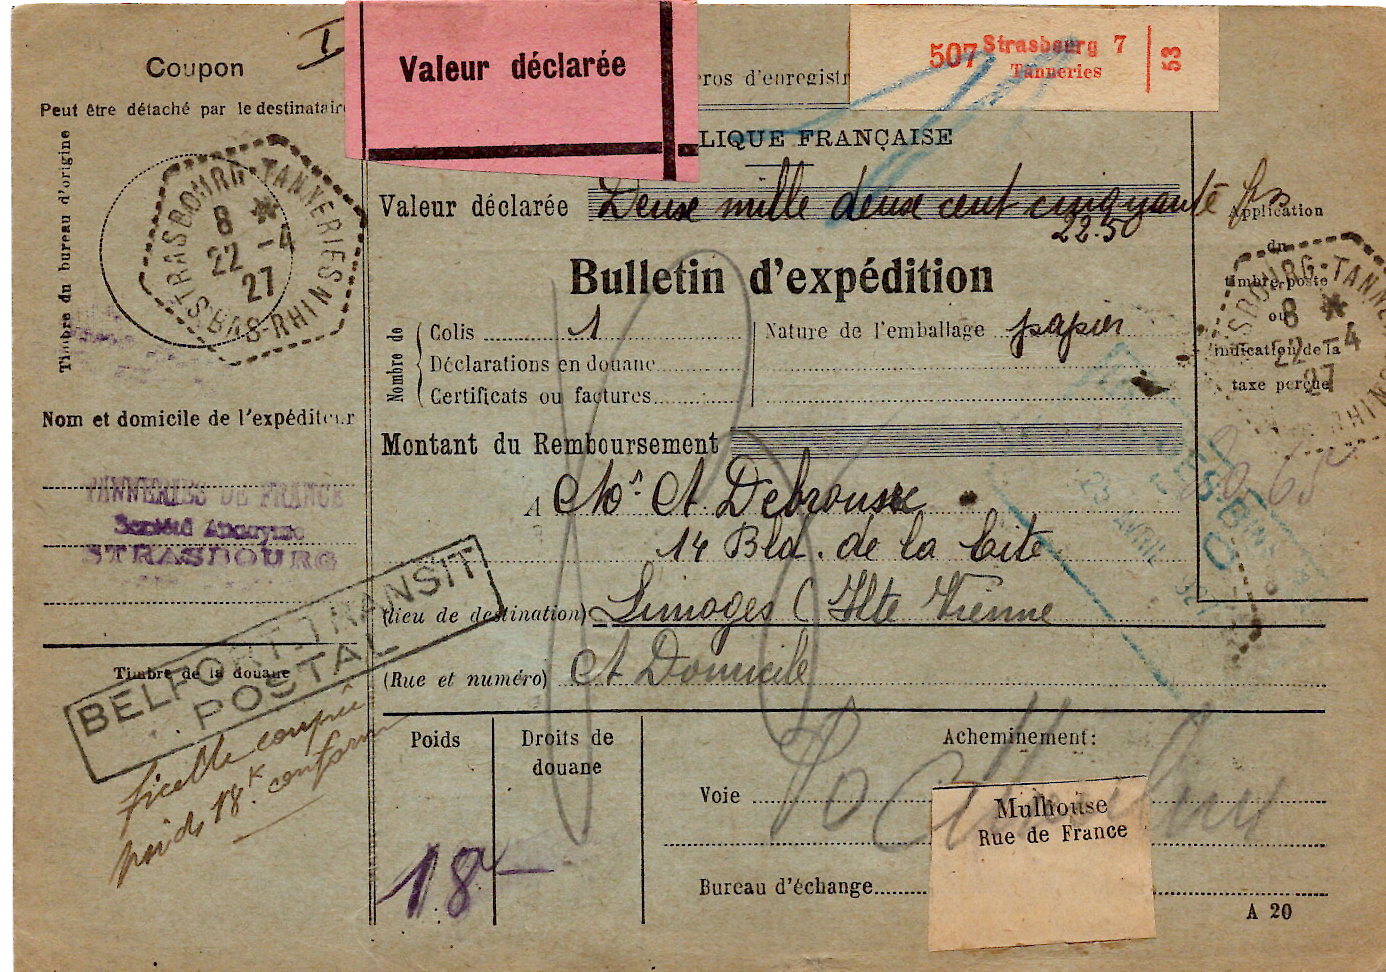 Coupon
I
Peut être détaché par le destinataire
Timbre du bureau d'origine
STRASBOURG-TANNERIES
8 *
22 -4
27
BAS-RHIN
Nom et domicile de l'expéditeur
TANNERIES DE FRANCE
Société Anonyme
STRASBOURG
BELFORT-TRANSIT
POSTAL
Timbre de la douane
ficelle coupée
poids 18k. conforme
Valeur déclarée
507 Strasbourg 7
Tanneries
53
ros d'enregistr
LIQUE FRANÇAISE
Valeur déclarée Deux mille deux cent cinquante frs
22.50
Bulletin d'expédition
Nombre de
Colis 1
Déclarations en douane
Certificats ou factures
Nature de l'emballage papier
Montant du Remboursement
A Mr. A Debrousse
14 Bld. de la Cité
(lieu de destination) Limoges (Hte Vienne
(Rue et numéro) A Domicile
Application
du
timbre-poste
ou
indication de la
taxe perçue
SBOURG-TANNE
8 *
22 -4
27
RHIN
25 AVRIL
Poids
18
Droits de
douane
Acheminement:
Voie
Mulhouse
Rue de France
Bureau d'échange
A 20